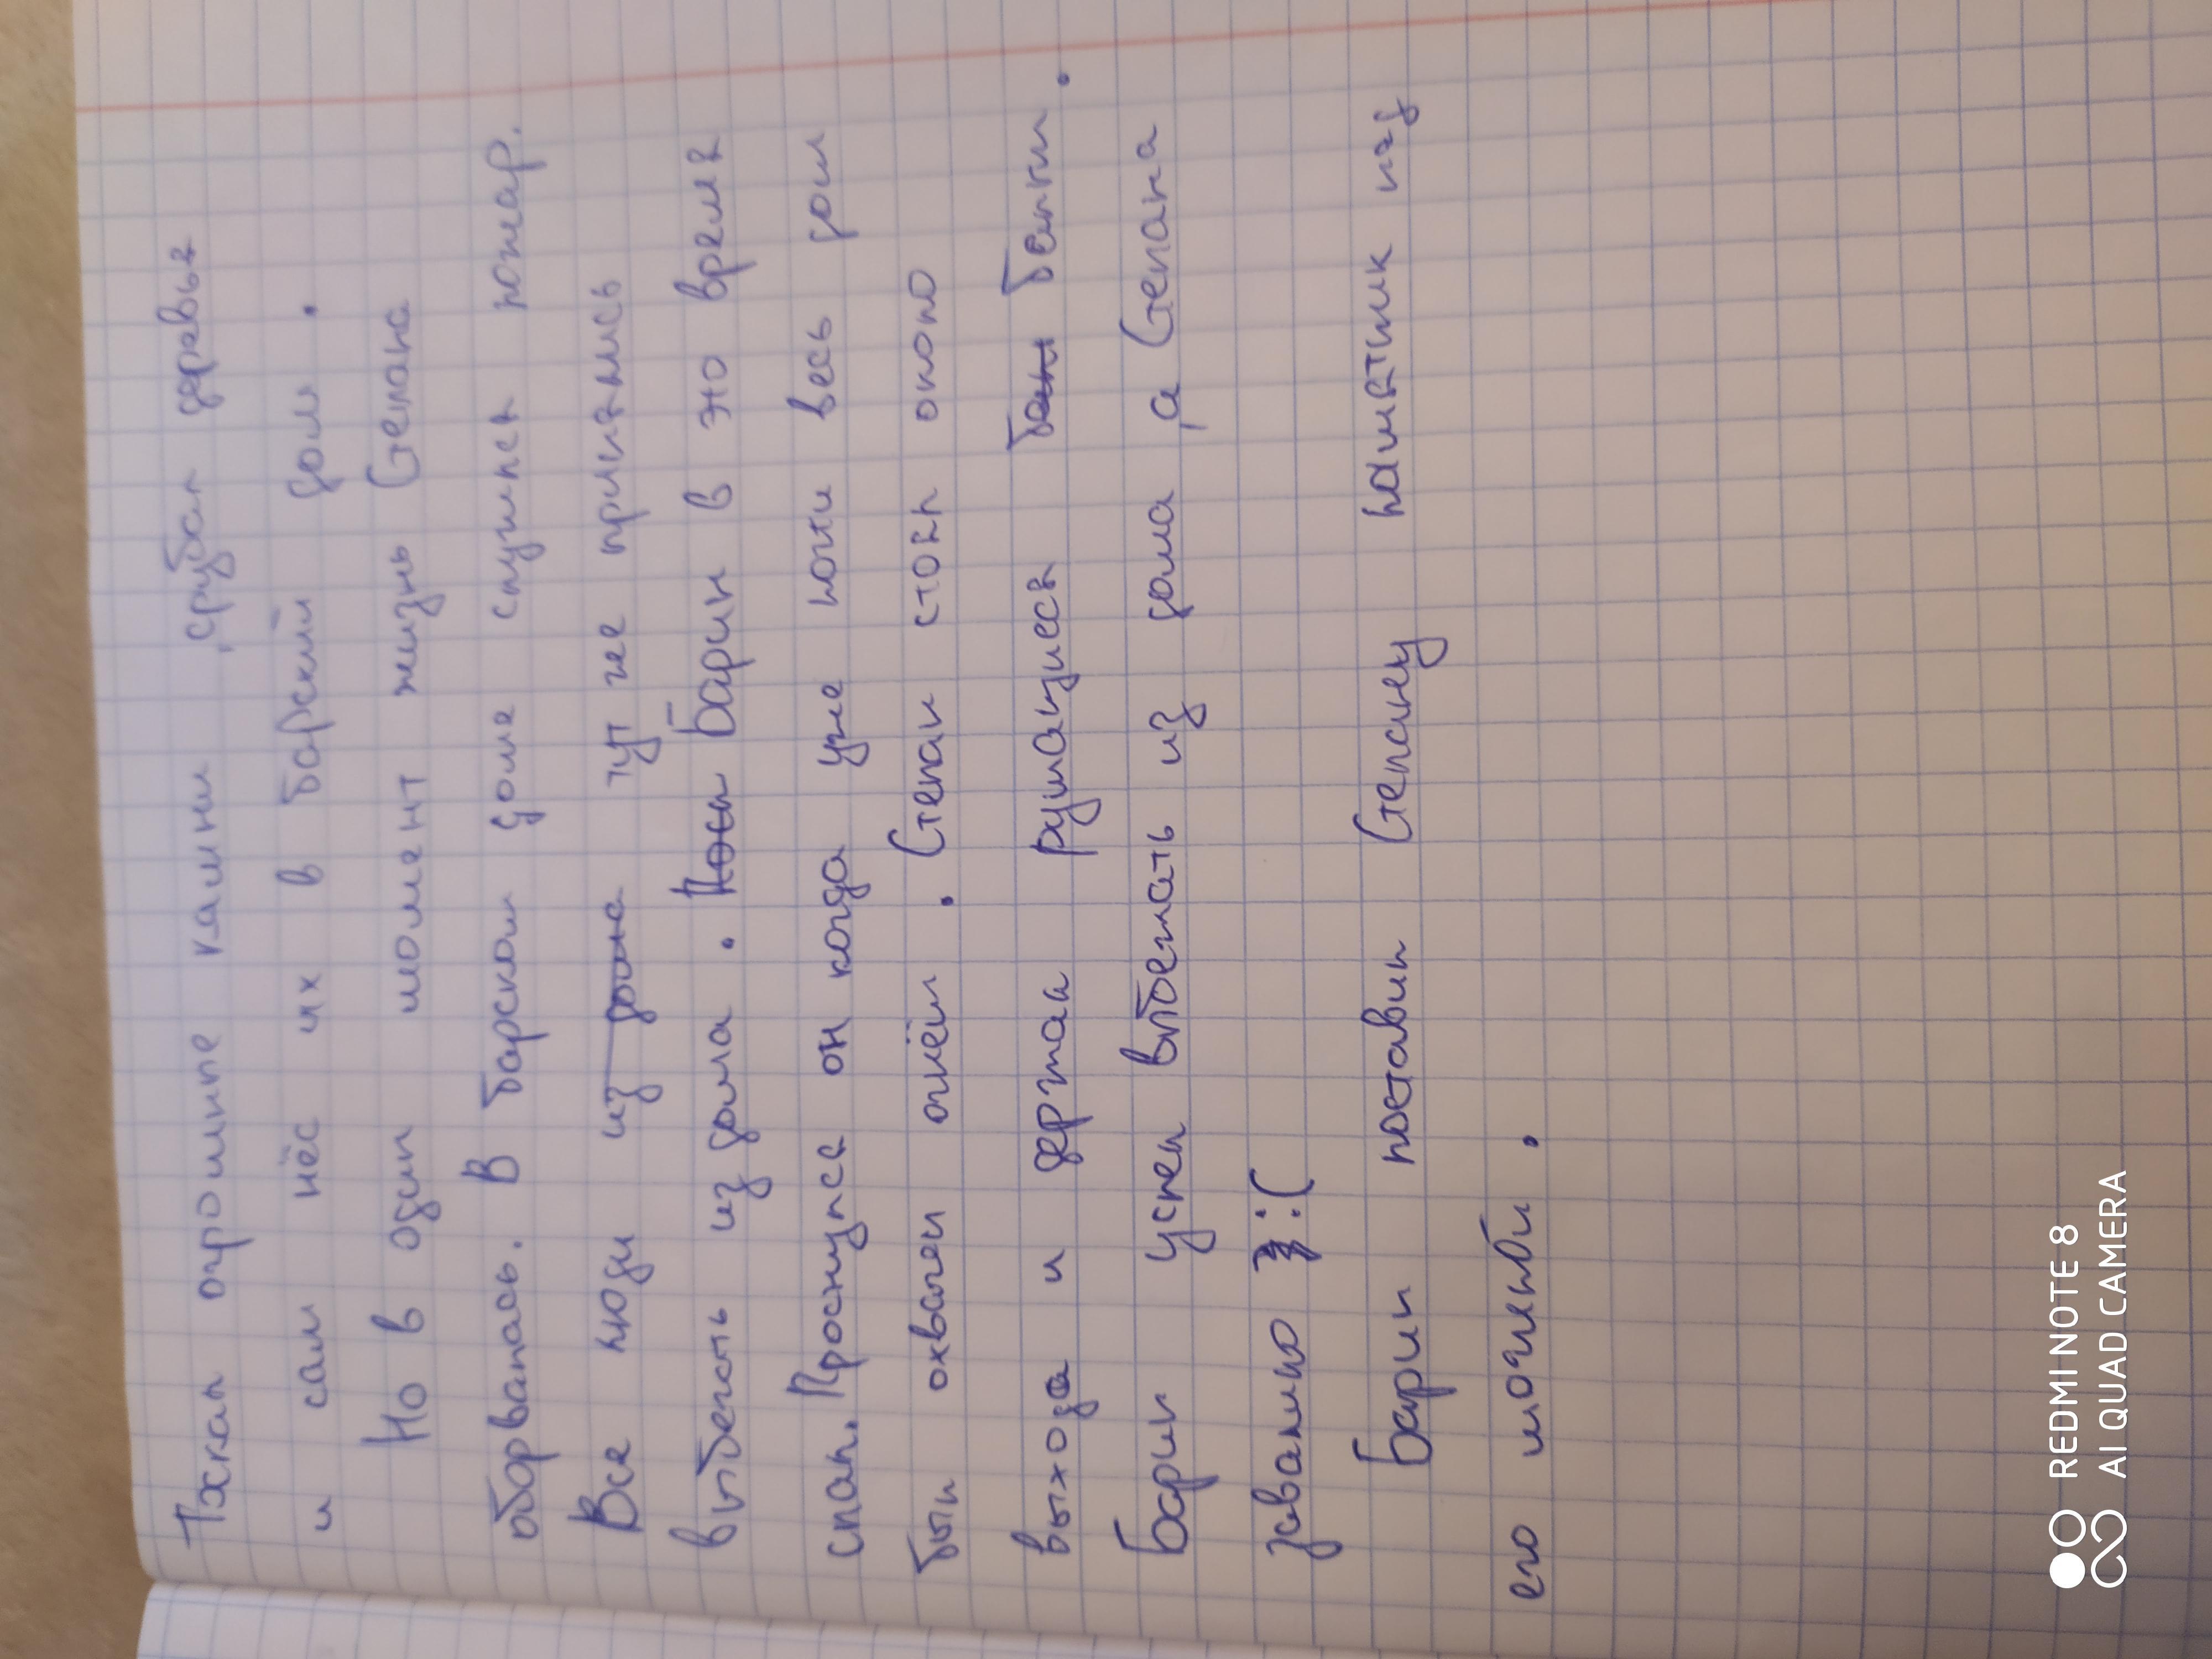 Тхкал огромные камни ,срубал деревья
и сам нёс их в барский дом .
Но в один момент жизнь Степана
оборвалась. В барском доме случился пожар.
Все люди из дома тут же примялись
выбегать из дома . Барин в это время
спал. Проснулся он когда уже почти весь дом
был охвачен огнём . Степан стоял около
выхода и держал рушащиеся балки .
Барин успел выбежать из дома ,а Степана
завалило :(
Барин поставил Степану памятник из
его могилы .
REDMI NOTE 8
AI QUAD CAMERA